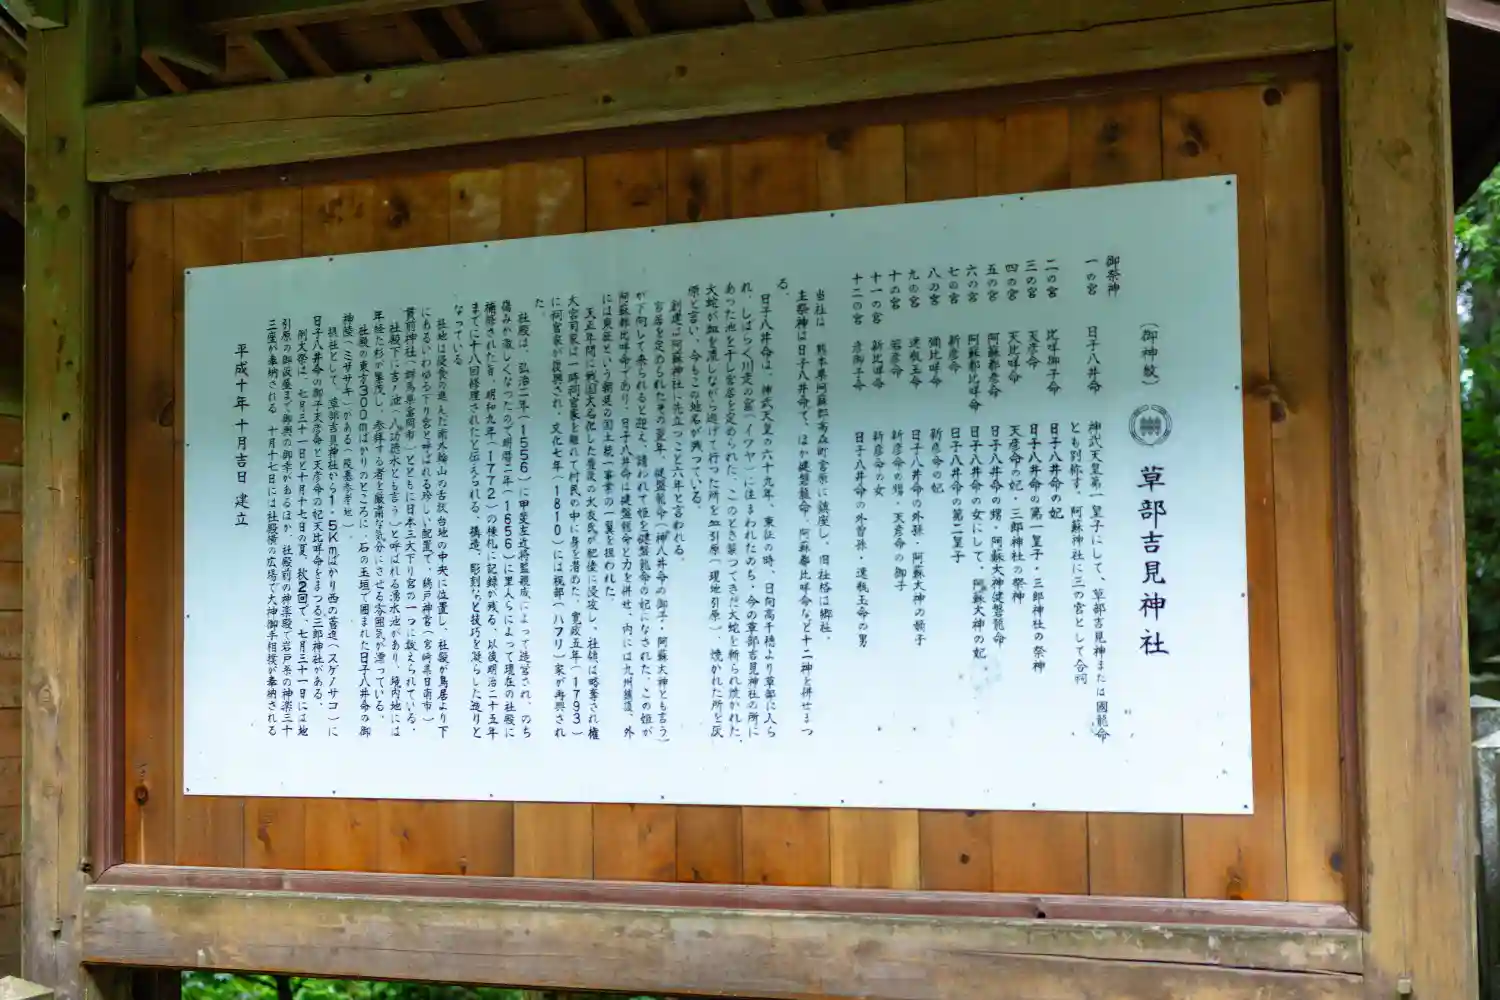 （御神紋） 草部吉見神社
御祭神
一の宮 日子八井命 神武天皇第一皇子にして、草部吉見神または國龍命
とも別称す。阿蘇神社に三の宮として合祠
二の宮 比咩御子命 日子八井命の妃
三の宮 天彦命 日子八井命の第一皇子・三郎神社の祭神
四の宮 天比咩命 天彦命の妃・三郎神社の祭神
五の宮 阿蘇都彦命 日子八井命の甥・阿蘇大神健磐龍命
六の宮 阿蘇都比咩命 日子八井命の女にして、阿蘇大神の妃
七の宮 新彦命 日子八井命の第二皇子
八の宮 彌比咩命 新彦命の妃
九の宮 速瓶玉命 日子八井命の外孫・阿蘇大神の嫡子
十の宮 若彦命 新彦命の甥・天彦命の御子
十一の宮 新比咩命 新彦命の女
十二の宮 彦御子命 日子八井命の外曽孫・速瓶玉命の男
当社は、熊本県阿蘇郡高森町宮原に鎮座し、旧社格は郷社。
主祭神は日子八井命で、ほか健磐龍命、阿蘇都比咩命など十二神を併せまつ
る。
日子八井命は、神武天皇の六十九年、東征の時、日向高千穂より草部に入ら
れ、しばらく川走の宮（イワヤ）に住まわれたのち、今の草部吉見神社の所に
あった池を干し宮居を定められた。このとき襲つてきた大蛇を斬られ焼かれた。
大蛇が血を流しながら逃げて行つた所を血引原（現地引原）、焼かれた所を灰
原と言い、今もこの地名が残っている。
創建は阿蘇神社に先立つこと六年と言われる。
宮居を定められたその翌年、健磐龍命（神八井命の御子・阿蘇大神とも言う）
が下向して来られると迎え、請われて姫を健磐龍命の妃になされた。この姫が
阿蘇都比咩命であり、日子八井命は健磐龍命と力を併せ、内には九州鎮護、外
には東征という朝廷の国土統一事業の一翼を担われた。
天正年間に戦国大名化した豊後の大友氏が肥後に侵攻し、社領は略奪され権
大宮司家は一時祠官家を離れて村民の中に身を潜めた。寛政五年（1793）
に祠官家が復興され、文化七年（1810）には祝部（ハフリ）家が再興され
た。
社殿は、弘治二年（1556）に甲斐左近将監親成によって造営され、のち
傷みが激しくなったので明暦二年（1656）に里人らによって現在の社殿に
補修された旨、明和九年（1772）の棟札に記録が残る。以後明治二十五年
までに十八回修理されたと伝えられる。構造、彫刻など技巧を凝らした造りと
なっている。
社地は浸食の進んだ南外輪山の舌状台地の中央に位置し、社殿が鳥居より下
にあるいわゆる下り宮と呼ばれる珍しい配置で、鵜戸神宮（宮崎県日南市）
貫前神社（群馬県富岡市）とともに日本三大下り宮の一つに数えられている。
社殿下に吉ノ池（八功徳水とも言う）と呼ばれる湧水池があり、境内地には
年経た杉が繁茂し、参拝する者を厳粛な気分にさせる雰囲気が漂っている。
社殿の東方300mばかりのところに、石の玉垣で囲まれた日子八井命の御
神陵（ミササギ）がある（陵墓参考地）
摂社として、草部吉見神社から1.5Kmばかり西の菅迫（スゲノサコ）に
日子八井命の御子天彦命と天彦命の妃天比咩命をまつる三郎神社がある。
例大祭は、七月三十一日と十月十七日の夏、秋2回で、七月三十一日には地
引原の御仮屋まで御輿の御幸があるほか、社殿前の神楽殿で岩戸系の神楽三十
三座が奉納される。十月十七日には社殿横の広場で大神御手相撲が奉納される
平成十年十月吉日 建立